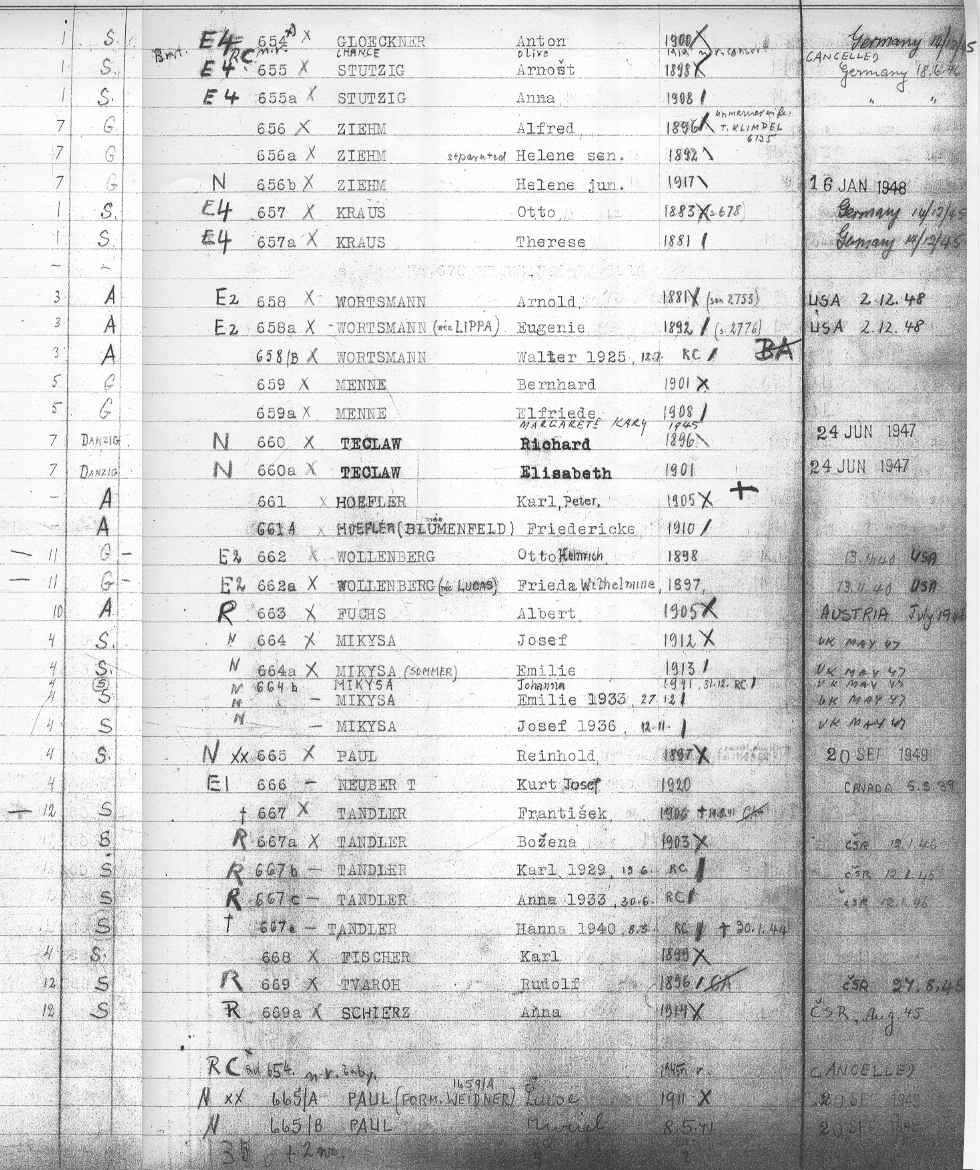 1 S. E4 654 X GLOECKNER Anton 1900 X Germany
Brit. RC CHANCE Olive CANCELLED
1 S. E4 655 X STUTZIG Arnošt 1898 X Germany 18.6.46
1 S. E4 655a X STUTZIG Anna 1908 / " "
7 G 656 X ZIEHM Alfred 1896 T. KLIMPEL 6135
7 G 656a X ZIEHM separated Helene sen. 1892 \
7 G N 656b X ZIEHM Helene jun. 1917 \ 16 JAN 1948
1 S. E4 657 X KRAUS Otto 1883 X (s 678) Germany 14/12/45
1 S. E4 657a X KRAUS Therese 1881 / Germany 14/12/45
- -
3 A E2 658 X WORTSMANN Arnold, 1881 X (son 2753) USA 2.12.48
3 A E2 658a X - WORTSMANN (née LIPPA) Eugenie 1892 / (s. 2776) USA 2.12.48
3 A 658/B X WORTSMANN Walter 1925, 12.7. RC / BA
5 G 659 X MENNE Bernhard 1901 X
5 G 659a X MENNE Elfriede 1908 /
MARGARETE KARY 1945
7 DANZIG N 660 X TECLAW Richard 1896 \ 24 JUN 1947
7 DANZIG N 660a X TECLAW Elisabeth 1901 24 JUN 1947
- A 661 X HOEFLER Karl, Peter, 1905 X +
- A 661A X HOEFLER (née BLUMENFELD) Friedericke 1910 /
— 11 G - E2 662 X WOLLENBERG Otto Heinrich 1898 13.11.40 USA
— 11 G - E2 662a X WOLLENBERG (née LUCAS) Frieda Wilhelmine, 1897, 13.11.40 USA
10 A R 663 X FUCHS Albert 1905 X AUSTRIA July
4 S. N 664 X MIKYSA Josef 1912 X UK MAY 47
4 S. N 664a X MIKYSA (SOMMER) Emilie 1913 / UK MAY 47
4 S N 664b MIKYSA Johanna 1941, 31.12. RC / UK MAY 47
4 S N - MIKYSA Emilie 1933, 27.12 / UK MAY 47
4 S N - MIKYSA Josef 1936, 12.11. / UK MAY 47
4 S. N xx 665 X PAUL Reinhold, 1897 X 20 SEP 1949
4 E1 666 - NEUBERT Kurt Josef 1920 CANADA 5.5.39
— 12 S † 667 X TANDLER František, 1906
12 S R 667a X TANDLER Božena 1903 X ČSR 12.1.46
S R 667b - TANDLER Karl 1929, 19.6. RC / ČSR 12.1.46
S R 667c - TANDLER Anna 1933, 30.6. RC / ČSR 12.1.46
S † - TANDLER Hanna 1940, 8.3. RC / † 30.1.44
4 S. 668 X FISCHER Karl 1899 X
12 S R 669 X TVAROH Rudolf 1896 / ČSR 27.8.45
12 S R 669a X SCHIERZ Anna 1914 X ČSR, Aug. 45
RC 654. n.r. baby. CANCELLED
N xx 665/A PAUL (FORM. WEIDNER) 1659/A Luise 1911 - X 20 SEP 1949
N 665/B PAUL 8.5.41
35 + 2